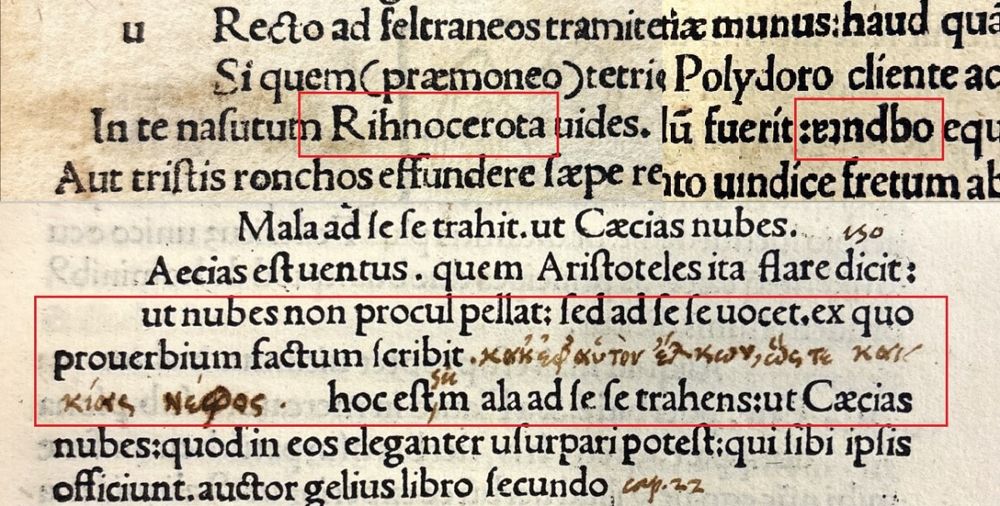 u Recto ad feltraneos tramite
Si quem(præmoneo)tetri
In te naſutum Rihnocerota uides.
Aut triſtis ronchos effundere ſæpe re
tiæ munus:haud quá
Polydoro cliente ac
lū fuerit: equ
nto uindice fretum ab
Mala ad ſe ſe trahit.ut Cæcias nubes.
Aecias eſt uentus. quem Ariſtoteles ita flare dicit:
ut nubes non procul pellat: ſed ad ſe ſe uocet.ex quo
prouerbium factum ſcribit. κακ' ἐφ' αὑτὸν ἕλκων, ὥς τε και-
κίας νέφος. hoc eſt, m ala ad ſe ſe trahens:ut Cæcias
nubes:quod in eos eleganter uſurpari poteſt:qui ſibi ipſis
officiunt.auctor gelius libro ſecundo cap. 22